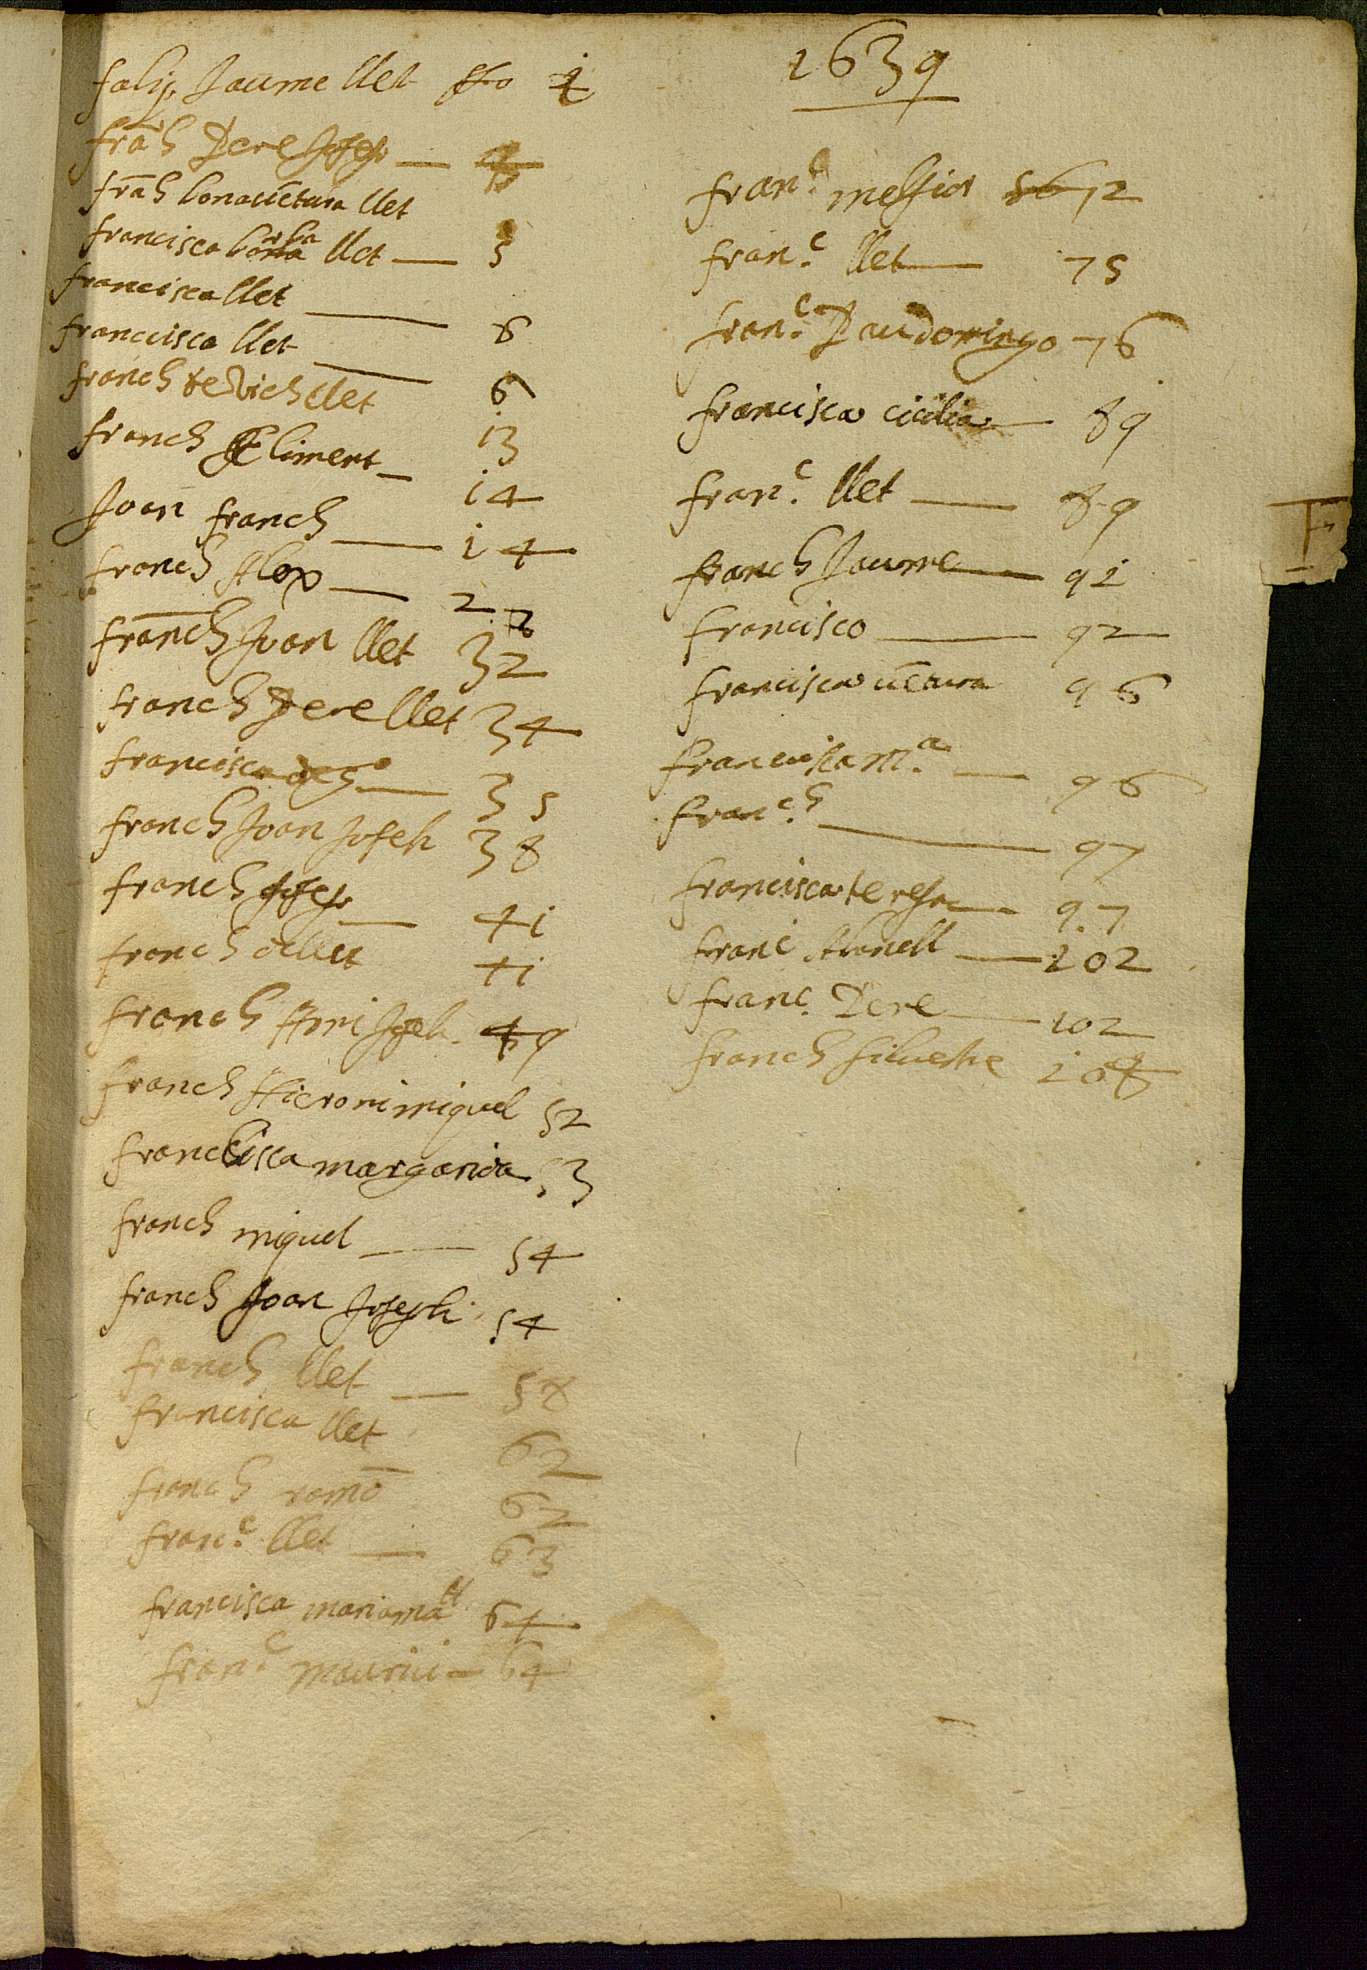 falip Jaume llet ffo 1
frāch Pere Joseph — 4
frāch bonavētura llet
francisca borba llet — 5
francisca llet — 6
francisca llet — 6
franch de Vich llet 13
franch Climent — 14
Joan franch — 14
franch Alex — 22
franch Joan llet 32
franch Pere llet 34
francisca — 35
franch Joan Joseph 38
franch Joseph — 41
franch llet 41
franch Joseph 49
franch Hieroni miquel 52
francisca margarida 53
franch miquel — 54
franch Joan Joseph 54
franch llet — 58
francisca llet 62
franch ramō 62
fran.c llet — 63
francisca mariama 64
fran.c maurici — 64
1639
fran.c melsior 72
fran.c llet — 75
fran.c Pau domingo 76
francisca cicilia — 89
fran.c llet — 89
franch Jaume — 91
francisco — 92
francisca vētura 96
francisca m.a — 96
fran.ch — 97
francisca teresa — 97
franc Abanell — 102
franc. Pere — 102
franch silvestre 108
F